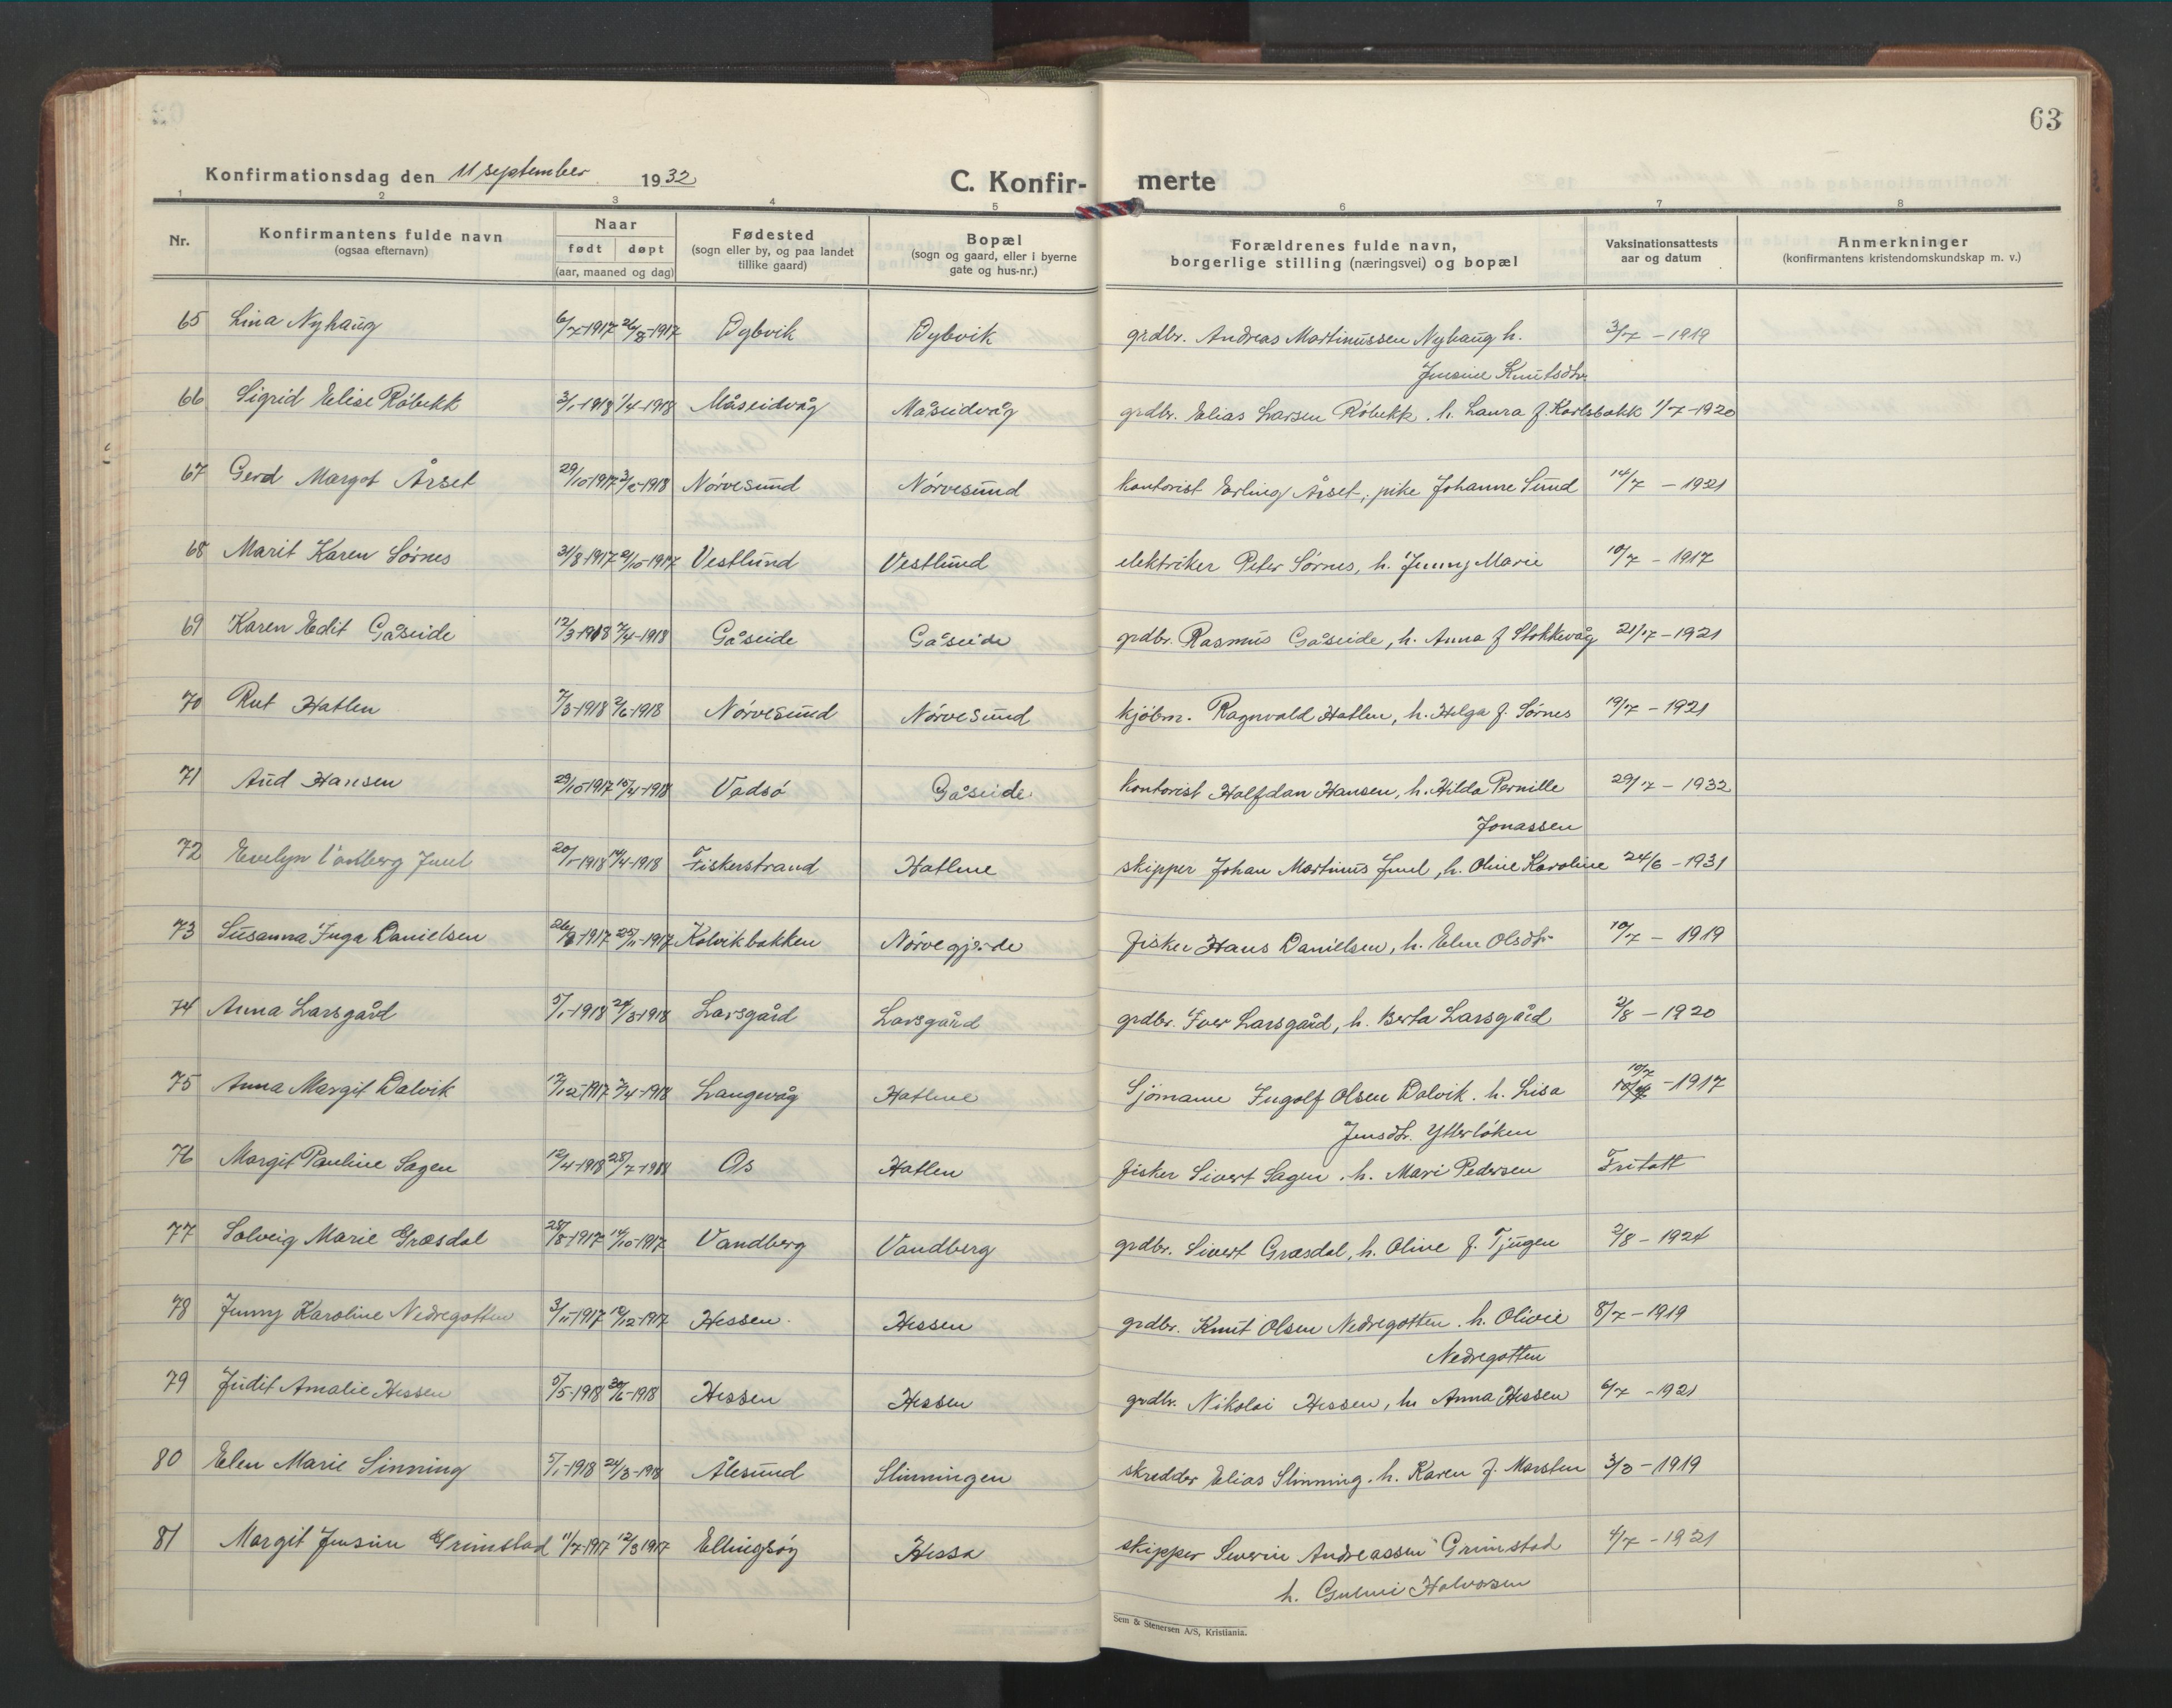 63
Konfirmationsdag den 11 september 1932
C. Konfir- merte
1 2 3 4 5 6 7 8
Nr. Konfirmantens fulde navn (ogsaa efternavn) Naar født døpt (aar, maaned og dag) Fødested (sogn eller by, og paa landet tillike gaard) Bopæl (sogn og gaard, eller i byerne gate og hus-nr.) Forældrenes fulde navn, borgerlige stilling (næringsvei) og bopæl Vaksinationsattests aar og datum Anmerkninger (konfirmantens kristendomskundskap m. v.)
65 Lina Nyhaug 6/7-1917 26/8-1917 Dybvik Dybvik grdbr. Andreas Martinussen Nyhaug h. 3/7 - 1919
Jensine Knutsdtr
66 Sigrid Elise Röbekk 3/1-1918 1/4-1918 Måseidvåg Måseidvåg grdbr. Elias Larsen Röbekk. h. Laura f. Karlsbakk 1/7-1920
67 Gerd Margot Årset 29/10-1917 3/2-1918 Nörvesund Nörvesund kontorist Erling Årset, pike Johanne Sund 14/7 - 1921
68 Marit Karen Sörnes 31/8-1917 21/10-1917 Vestlund Vestlund elektriker Peter Sörnes, h. Jenny Marie 10/7 - 1917
69 Karen Edit Gåseide 12/3-1918 7/4-1918 Gåseide Gåseide grdbr. Rasmus Gåseide, h. Anna f Stokkevåg 21/7-1921
70 Rut Hatlen 7/3-1918 2/6-1918 Nörvesund Nörvesund kjöbm. Ragnvald Hatlen, h. Helga f. Sörnes 19/7 - 1921
71 Aud Hansen 29/10-1917 15/4-1918 Vadsö Gåseide kontorist Halfdan Hansen, h. Hilda Pernille 29/7 - 1932
Jonassen
72 Evelyn Juul 20/1-1918 14/4-1918 Fiskerstrand Hatlene skipper Johan Martinus Juul, h. Oline Karoline 24/6-1931
73 Susanna Inga Danielsen 26/8-1917 25/11-1917 Kolvikbakken Nörvegjerde fisker Hans Danielsen, h. Elen Olsdtr 10/7 - 1919
74 Anna Larsgård 5/1-1918 24/3-1918 Larsgård Larsgård grdbr. Iver Larsgård, h. Berta Larsgård 2/8 - 1920
75 Anna Margit Dalvik 17/12-1917 7/4-1918 Langevåg Hatlene Sjömann Ingolf Olsen Dalvik. h. Lisa 10/7 -1917
Jensdtr. Ytterlöken
76 Margit Pauline Sagen 12/4-1918 28/7-1918 Os Hatlen fisker Sivert Sagen. h. Mari Pedersen Fritatt
77 Solveig Marie Græsdal 28/8-1917 14/10-1917 Vandberg Vandberg grdbr. Sivert Græsdal, h. Oline f. Tjugen 2/8 - 1924
78 Jenny Karoline Nedregotten 3/11-1917 10/12-1917 Hessen Hessen grdbr. Knut Olsen Nedregotten. h. Olivie 8/7-1919
Nedregotten
79 Judit Amalie Hessen 5/5-1918 30/6-1918 Hessen Hessen grdbr. Nikolai Hessen, h. Anna Hessen 6/7 -1921
80 Elen Marie Sinning 5/1-1918 24/3-1918 Ålesund Slinningen skredder Elias Slinning. h. Karen f. Marsten 3/3-1919
81 Margit Jensine Grimstad 11/7-1917 12/8 1917 Ellingsöy Hessa skipper Severin Andreassen Grimstad 4/7 - 1921
h. Halvorsen
Sem & Stenersen A/S, Kristiania.